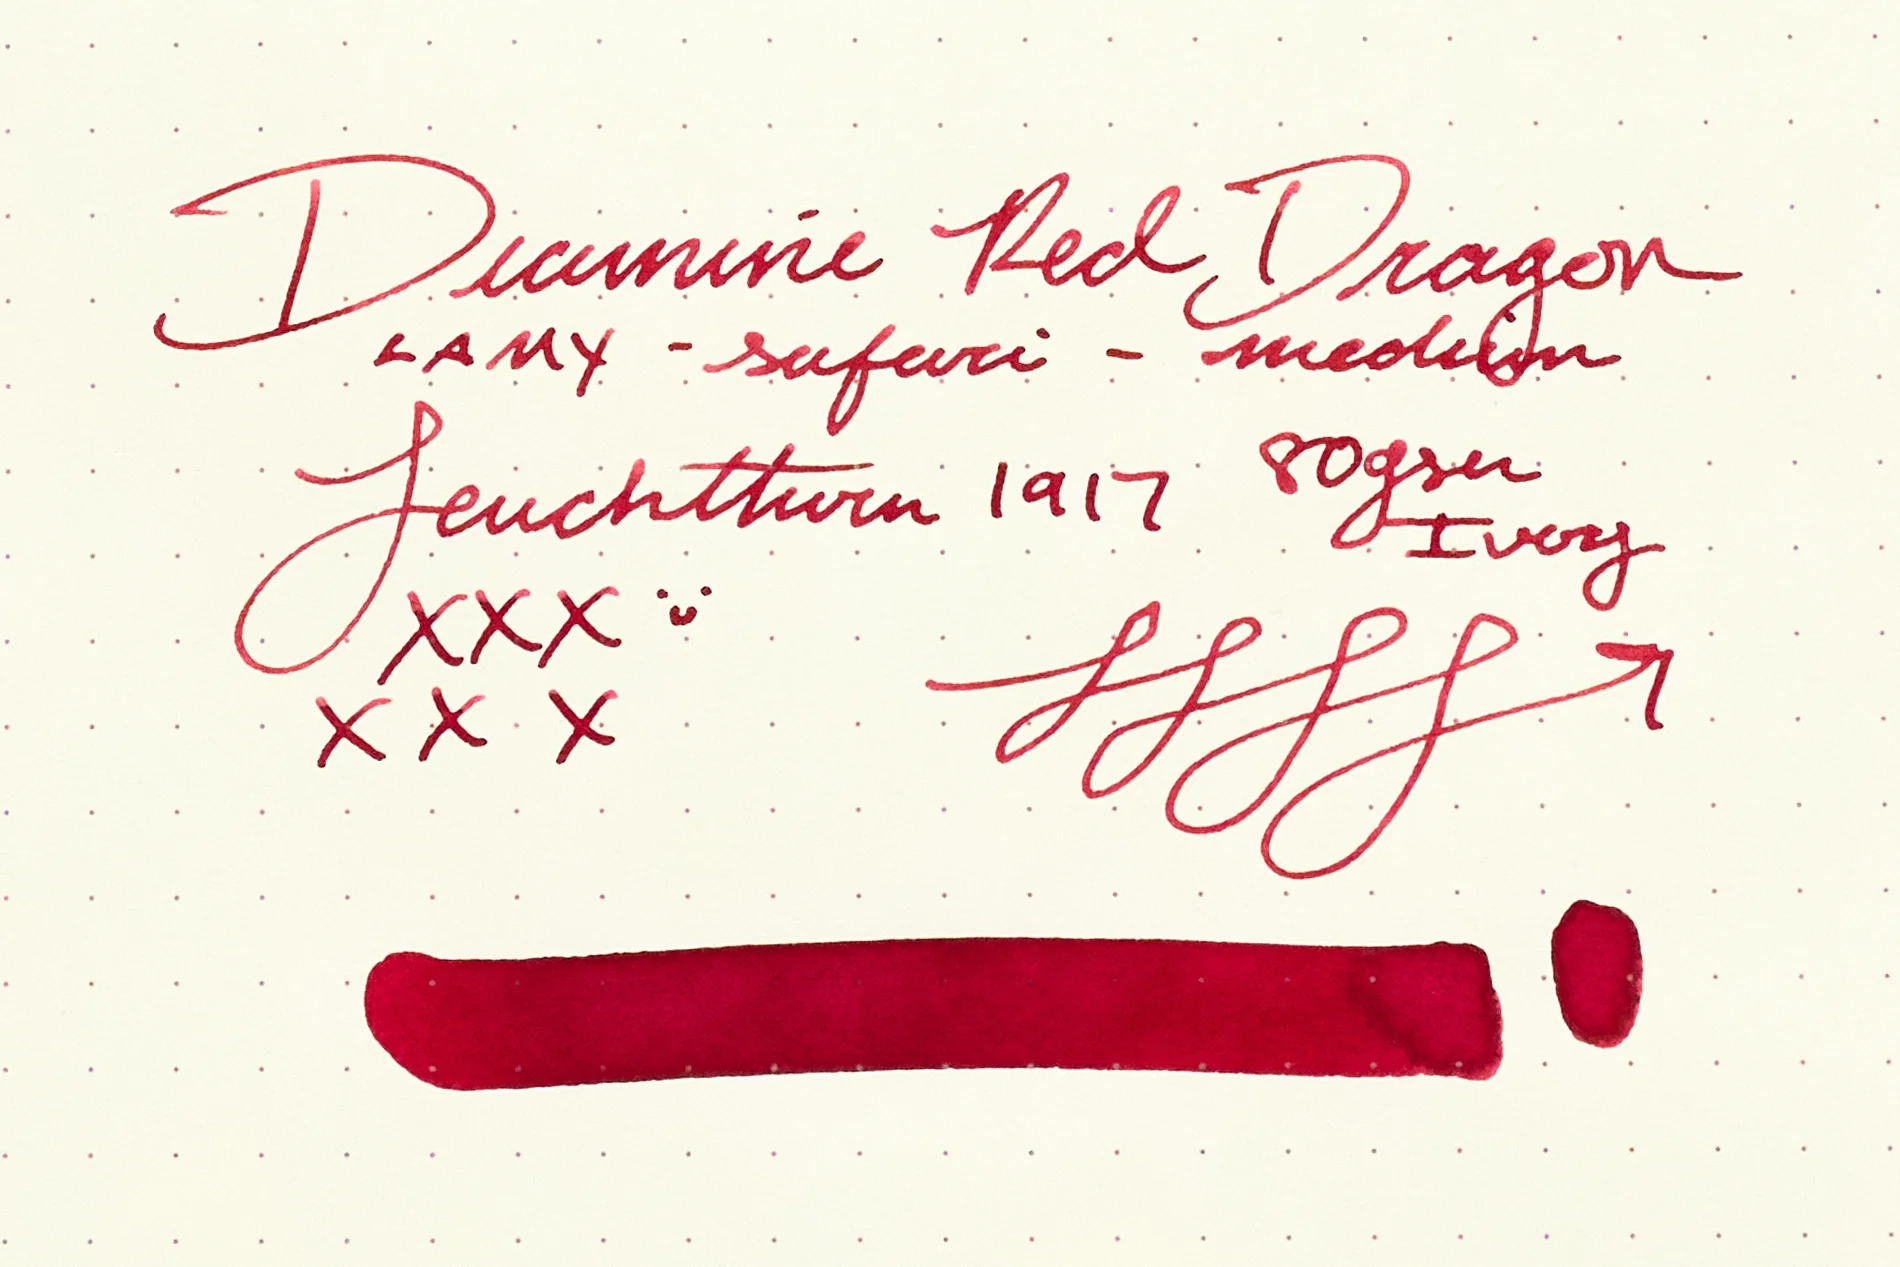 Diamine Red Dragon
LAMY - safari - medium
Leuchtturm 1917 80gsm
Ivory
XXX
X X X